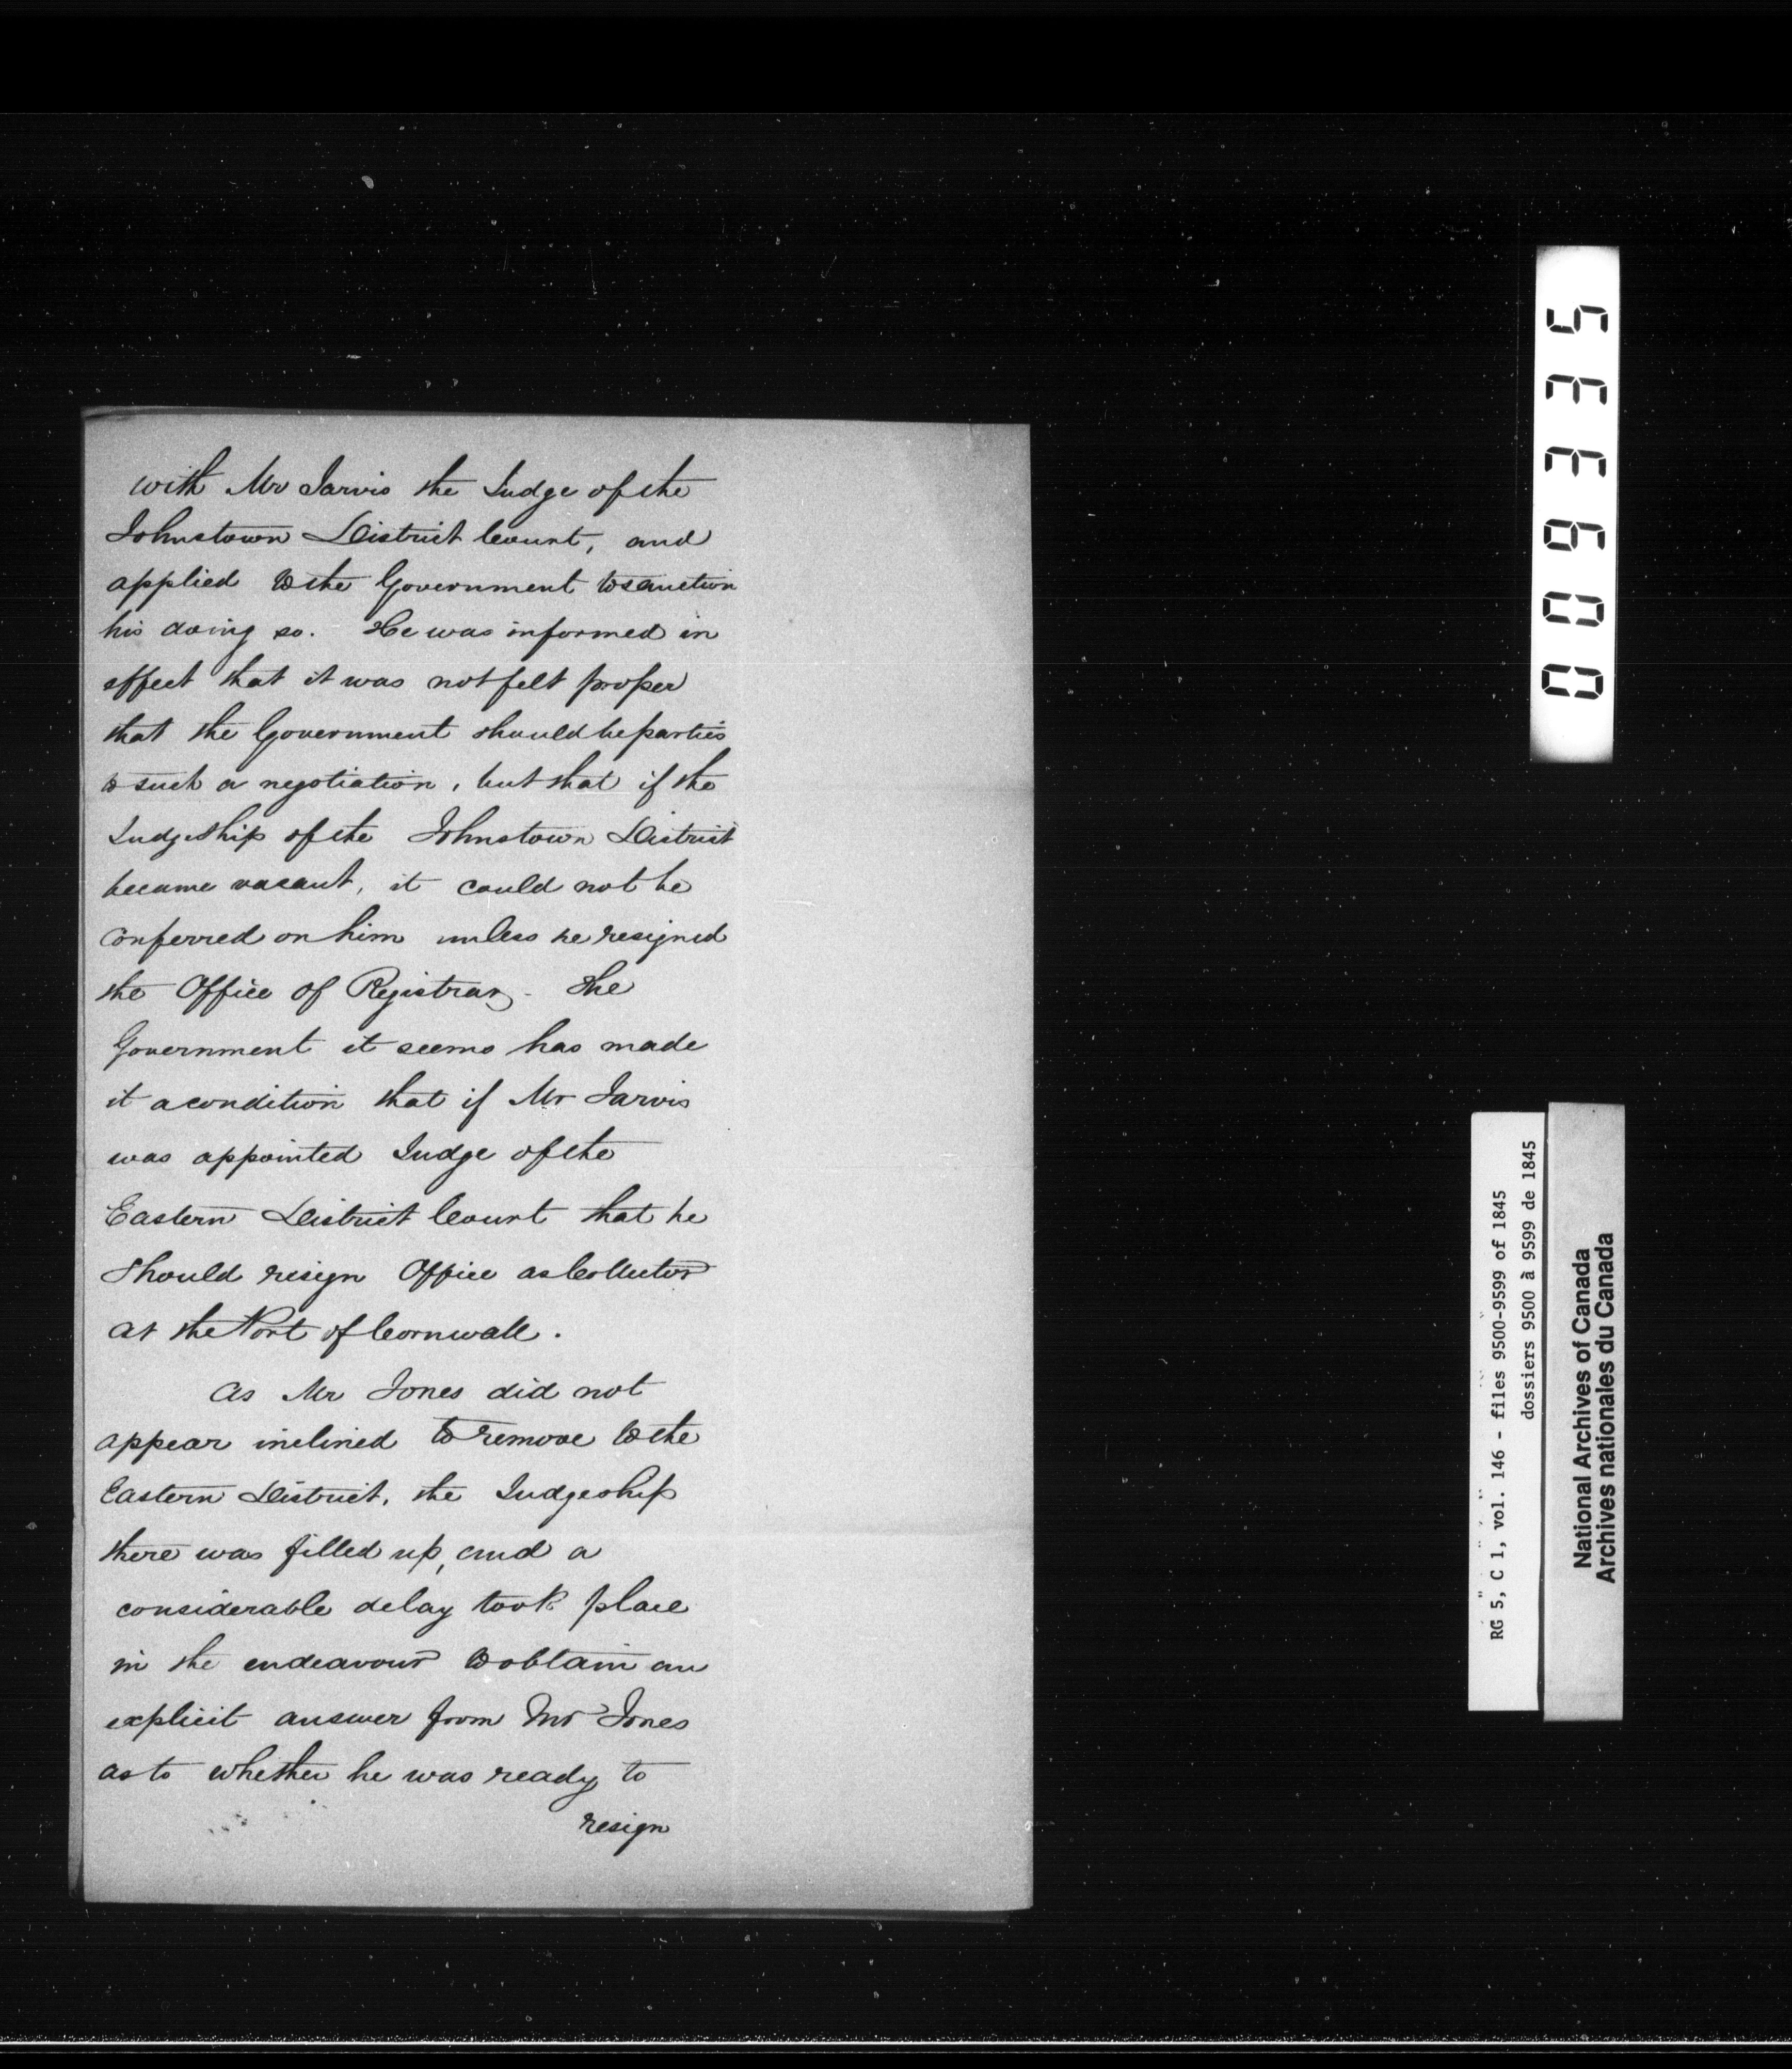 with Mr Jarvis the Judge of the
Johnstown District Court, and
applied to the Government to sanction
his doing so. He was informed in
effect that it was not felt proper
that the Government should be parties
to such a negotiation, but that if the
Judgeship of the Johnstown District
became vacant, it could not be
conferred on him unless he resigned
the Office of Registrar. The
Government it seems has made
it a condition that if Mr Jarvis
was appointed Judge of the
Eastern District Court that he
should resign Office as Collector
at the Port of Cornwall.
As Mr Jones did not
appear inclined to remove to the
Eastern District, the Judgeship
there was filled up, and a
considerable delay took place
in the endeavour to obtain an
explicit answer from Mr Jones
as to whether he was ready to
resign
009335
RG 5, C 1, vol. 146 - files 9500-9599 of 1845
dossiers 9500 à 9599 de 1845
National Archives of Canada
Archives nationales du Canada